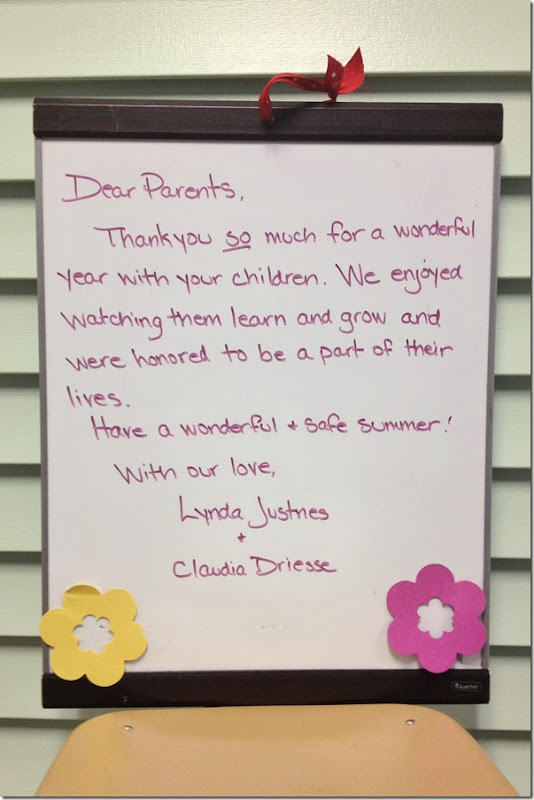 Dear Parents,
Thankyou so much for a wonderful
year with your children. We enjoyed
watching them learn and grow and
were honored to be a part of their
lives.
Have a wonderful + safe summer!
With our love,
Lynda Justnes
+
Claudia Driesse
Quartet